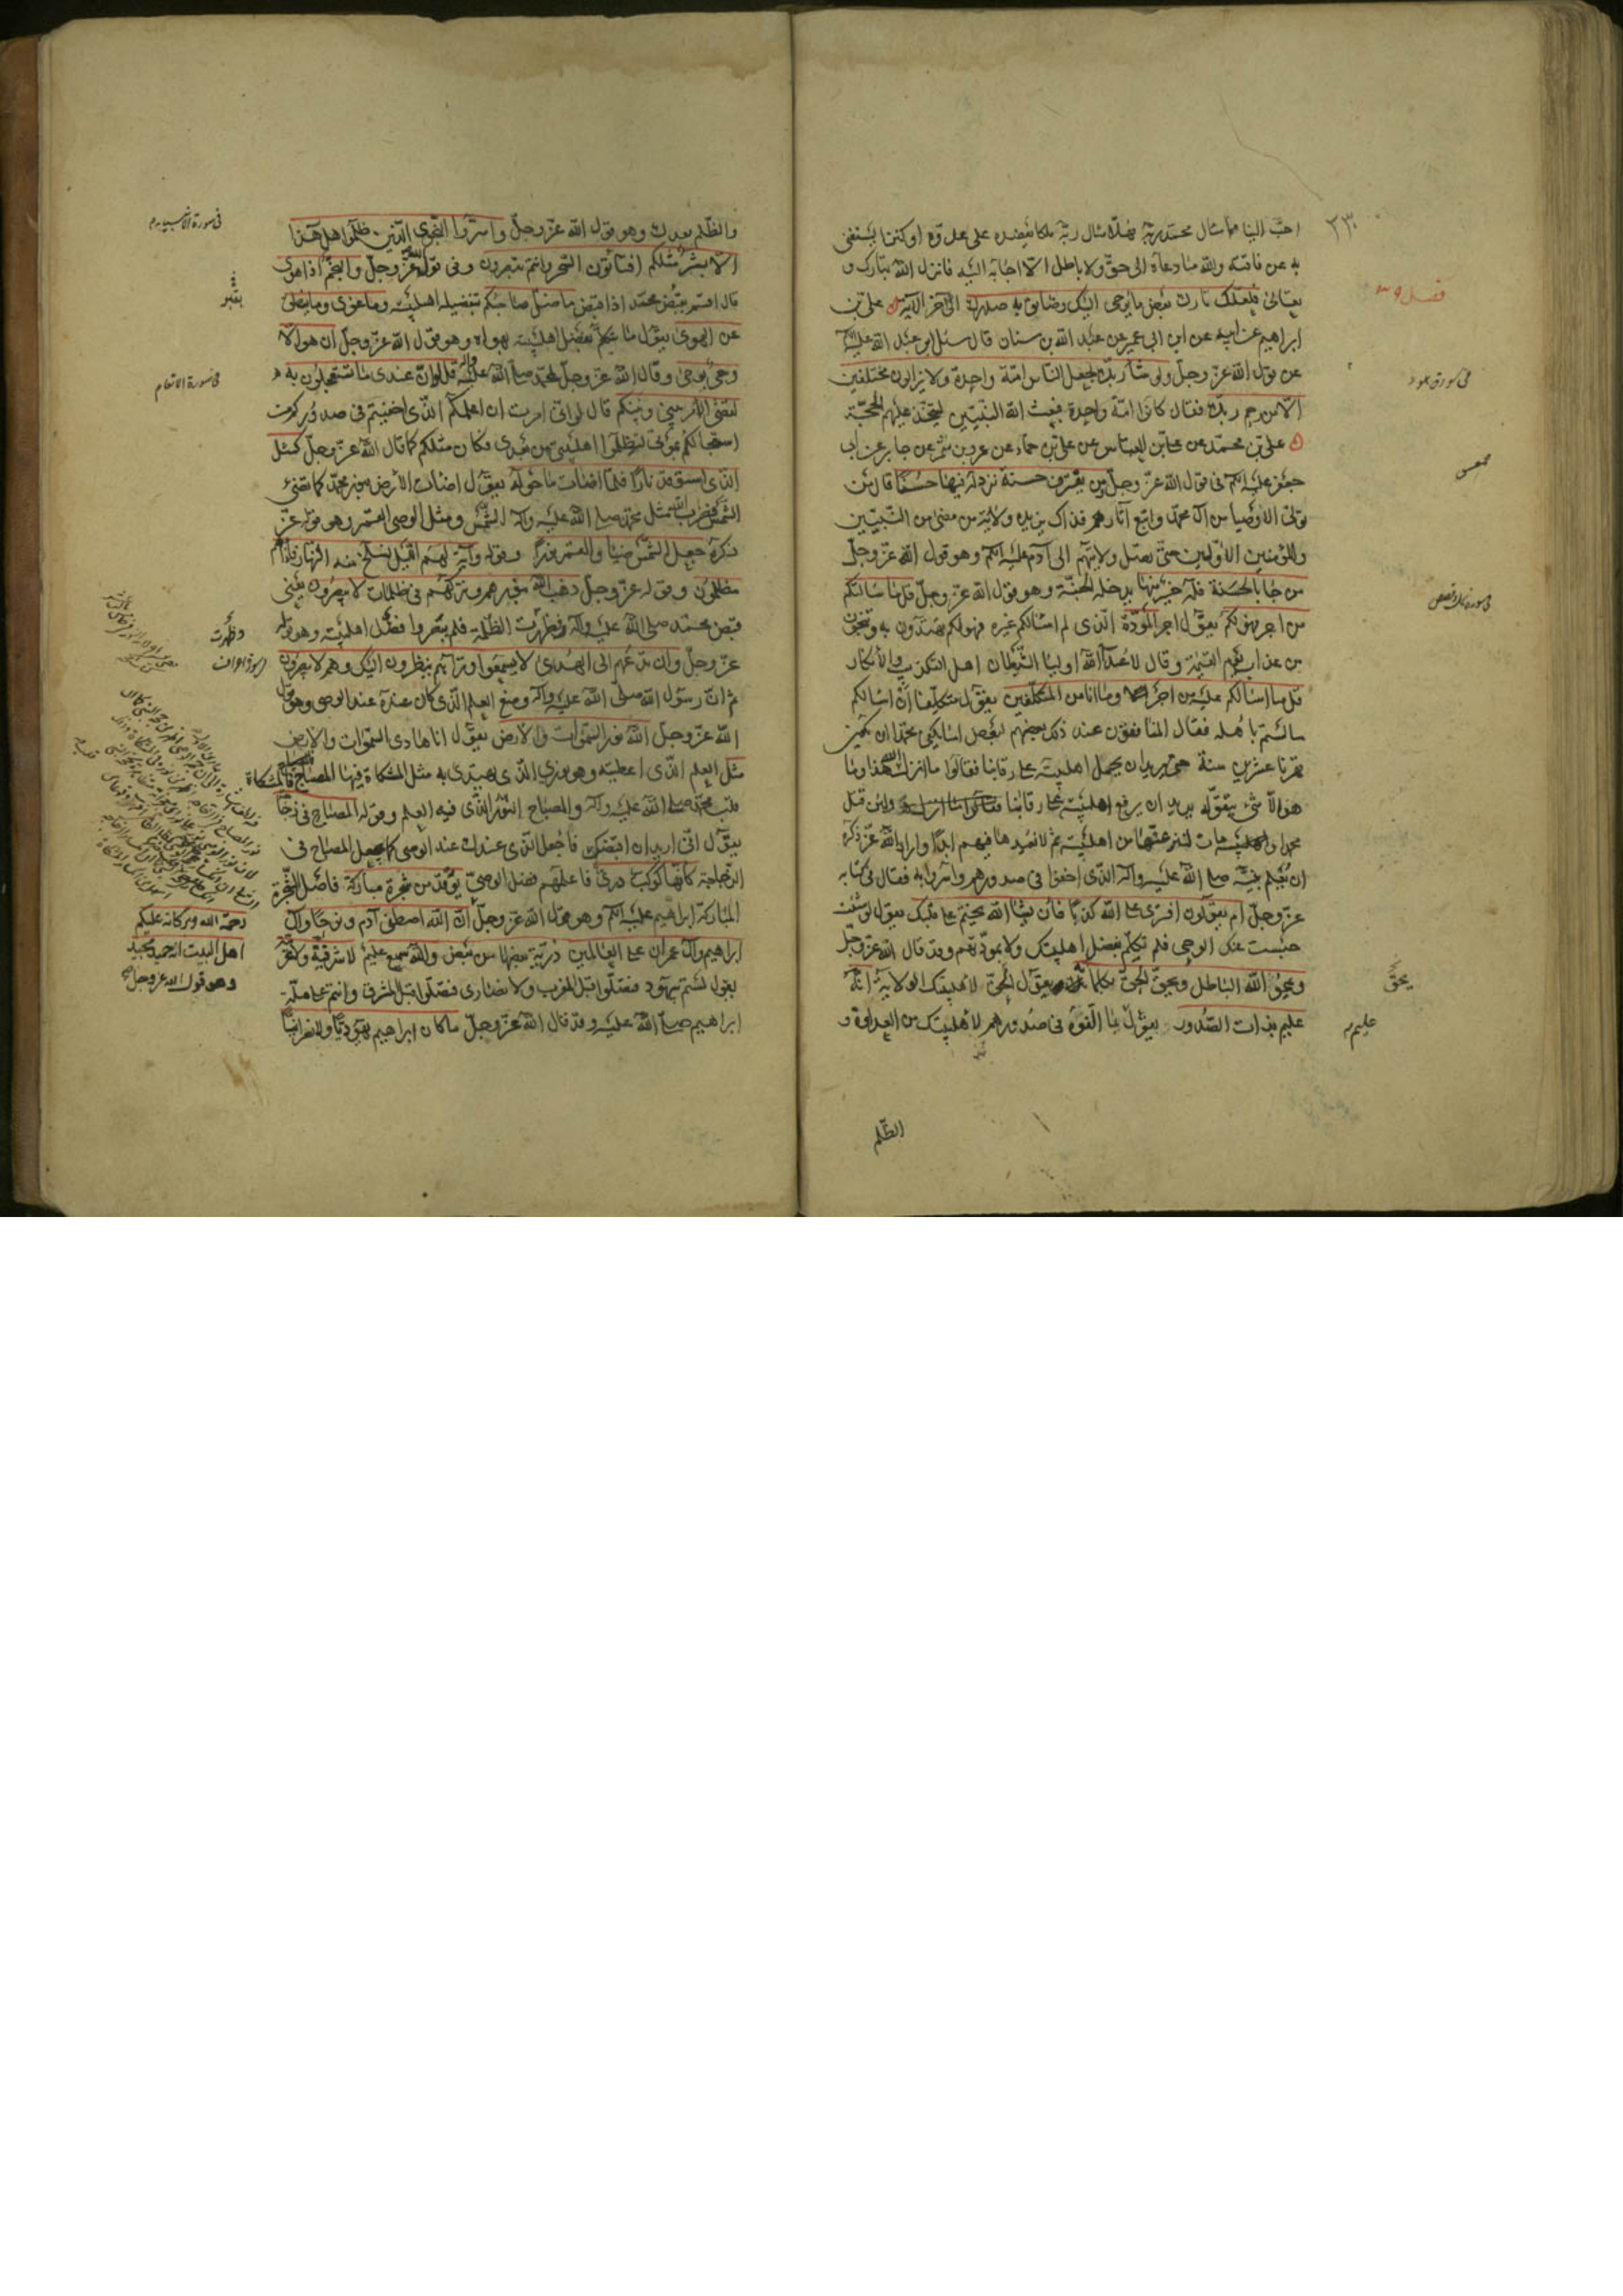 احبّ الينا مما سأل محمد ربّه فهلّا سأل ربّه ملكا يعضده على عدوّه او كنزا يستغنى
به عن فاقته والله ما دعاه الى حقّ ولا باطل الّا اجابه اليه فانزل الله تبارك و
تعالى فلعلّك تارك بعض ما يوحى اليك وضائق به صدرك الى آخر الآية علىّ بن
ابراهيم عن ابيه عن ابن ابى عمير عن عبد الله بن سنان قال سئل ابو عبد الله عليه السلام
عن قول الله عزّ وجلّ ولو شاء ربّك لجعل الناس امّة واحدة ولا يزالون مختلفين
الّا من رحم ربّك فقال كانوا امّة واحدة فبعث الله النبيّين ليتّخذ عليهم الحجّة
علىّ بن محمّد عن علىّ بن العباس عن علىّ بن حماد عن عمرو بن شمر عن جابر عن ابى
جعفر عليه السلام فى قول الله عزّ وجلّ من يقترف حسنة نزد له فيها حسنا قال من
تولّى الاوصياء من آل محمّد واتّبع آثارهم فذاك يزيده ولاية من مضى من النّبيّين
والمؤمنين الاوّلين حتى تصل ولايتهم الى آدم عليه السلام وهو قول الله عزّ وجلّ
من جاء بالحسنة فله خير منها يدخله الجنّة وهو قول الله عزّ وجلّ قل ما سألتكم
من اجر فهو لكم يقول اجر المودّة الّذى لم اسألكم غيره فهو لكم تهتدون به وتنجون
من عذاب يوم القيمة وقال لاعداء الله اولياء الشّيطان اهل التكذيب والانكار
قل ما اسألكم عليه من اجر وما انا من المتكلّفين يقول متكلّفا ان اسألكم
ما لستم باهله فقال المنافقون عند ذلك بعضهم لبعض اما يكفى محمّدا ان يكون
قهرنا عشرين سنة حتى يريد ان يحمل اهلبيته على رقابنا فقالوا ما انزل الله هذا وما
هو الّا شئ يتقوّله يريد ان يرفع اهلبيته على رقابنا ولئن قتل
محمد او مات لننزعنّها من اهلبيته ثم لا نعيدها فيهم ابدا واراد الله عزّ ذكره
ان يعلم نبيّه صلى الله عليه وآله الذى اخفوا فى صدورهم واسرّوا به فقال فى كتابه
عزّ وجلّ ام يقولون افترى على الله كذبا فان يشأ الله يختم على قلبك يقول لو شئت
حبست عنك الوحى فلم تكلّم بفضل اهلبيتك ولا بمودّتهم وقد قال الله عزّ وجلّ
ويمح الله الباطل ويحقّ الحقّ بكلماته يقول الحقّ لاهلبيتك الولاية انّه
عليم بذات الصّدور يقول بما القوه فى صدورهم لاهلبيتك من العداوة و
الظّلم
٢٣٠
فى سورة هود
يحقّ
عليم
والظّلم بعدك وهو قول الله عزّ وجلّ واسرّوا النّجوى الّذين ظلموا هل هذا
الّا بشر مثلكم افتأتون السّحر وانتم تبصرون وفى قول الله عزّ وجلّ والنجم اذا هوى
قال اقسم بقبض محمّد اذا قبض ما ضلّ صاحبكم بتفضيله اهلبيته وما غوى وما ينطق
عن الهوى يقول ما يتكلّم بفضل اهلبيته بهواه وهو قول الله عزّ وجلّ ان هو الّا
وحى يوحى وقال الله عزّ وجلّ لمحمّد صلى الله عليه وآله قل لو انّ عندى ما تستعجلون به
لقضى الامر بينى وبينكم قال لو انّى امرت ان اعلمكم الّذى اخفيتم فى صدوركم من
استعجالكم بموتى لتظلموا اهلبيتى من بعدى فكان مثلكم كما قال الله عزّ وجلّ كمثل
الذى استوقد نارا فلمّا اضاءت ما حوله يقول اضاءت الارض بنور محمّد كما تضئ
الشمس فضرب الله مثل محمّد صلى الله عليه وآله الشمس ومثل الوصى القمر وهو قوله عزّ
ذكره جعل الشّمس ضياء والقمر نورا وقوله وآية لهم اللّيل نسلخ منه النّهار فاذا هم
مظلمون وقوله عزّ وجلّ ذهب الله بنورهم وتركهم فى ظلمات لا يبصرون يعنى
قبض محمّد صلى الله عليه وآله فظهرت الظّلمة فلم يبصروا فضل اهلبيته وهو قوله
عزّ وجلّ وان تدعهم الى الهدى لا يسمعوا وتراهم ينظرون اليك وهم لا يبصرون
ثم انّ رسول الله صلى الله عليه وآله وضع العلم الّذى كان عنده عند الوصى وهو قول
الله عزّ وجلّ الله نور السّموات والارض يقول انا هادى السّموات والارض
مثل العلم الّذى اعطيته وهو نورى الّذى يهتدى به مثل المشكاة فيها المصباح فالمشكاة
قلب محمّد صلى الله عليه وآله والمصباح النّور الّذى فيه العلم وقوله المصباح فى زجاجة
يقول انّى اريد ان اقبضك فاجعل الّذى عندك عند الوصى كما يجعل المصباح فى
الزّجاجة كأنّها كوكب درىّ فاعلمهم فضل الوصىّ يوقد من شجرة مباركة فاصل الشّجرة
المباركة ابراهيم عليه السلام وهو قول الله عزّ وجلّ انّ الله اصطفى آدم ونوحا وآل
ابراهيم وآل عمران على العالمين ذريّة بعضها من بعض والله سميع عليم لا شرقيّة ولا غربيّة
يقول لستم بيهود فتصلّوا قبل المغرب ولا نصارى فتصلّوا قبل المشرق وانتم على ملّة
ابراهيم صلى الله عليه وقد قال الله عزّ وجلّ ما كان ابراهيم يهوديّا ولا نصرانيّا
فى سورة الانبياء
بقبر
فى سورة الانعام
وظهرت
رحمة الله وبركاته عليكم
اهل البيت انه حميد مجيد
وهو قول الله عز وجل